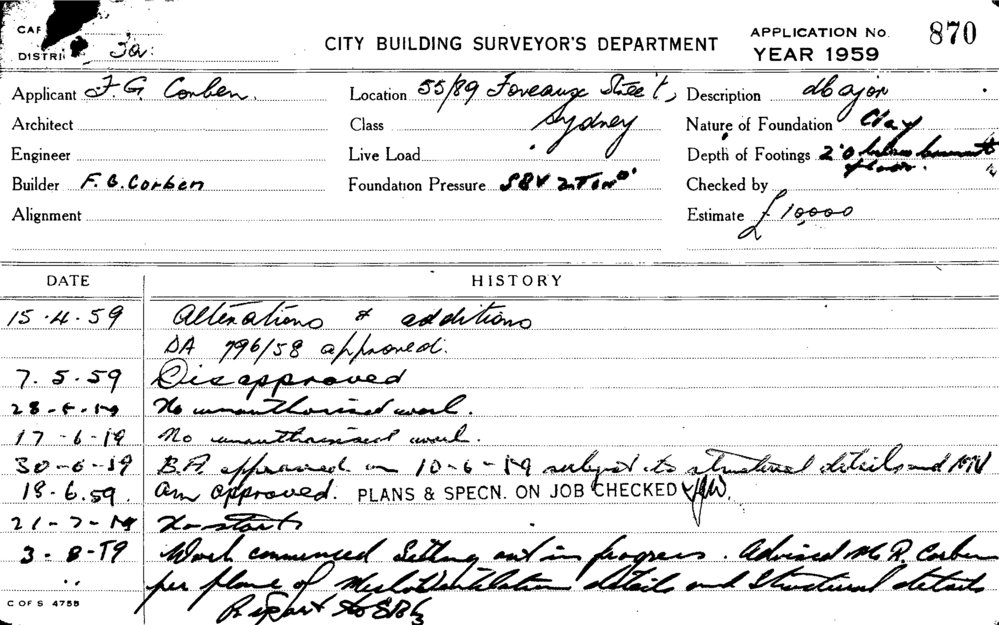 CITY BUILDING SURVEYOR'S DEPARTMENT
APPLICATION No. 870
YEAR 1959
CAF
DISTRI 3a.
Applicant F. G. Corben.
Location 55/89 Foveaux Street, Sydney
Description Major
Architect
Class
Nature of Foundation Clay
Engineer
Live Load
Depth of Footings 2'0 below basement floor.
Builder F. G. Corben
Foundation Pressure
Checked by
Alignment
Estimate £10,000
DATE HISTORY
15.4.59 Alterations & additions
DA 796/58 approved.
7.5.59 Disapproved
No unauthorised work.
17-6-59 No unauthorised work.
30-6-59 B.A. approved on 10-6-59 subject to structural details and
18.6.59. Am approved. PLANS & SPECN. ON JOB CHECKED
21-7-59 No start
3-8-59 Work commenced Setting out in progress. Advised Mr R. Corben
" per phone of Mech Ventilation details and Structural details
Report to
C OF S 4755